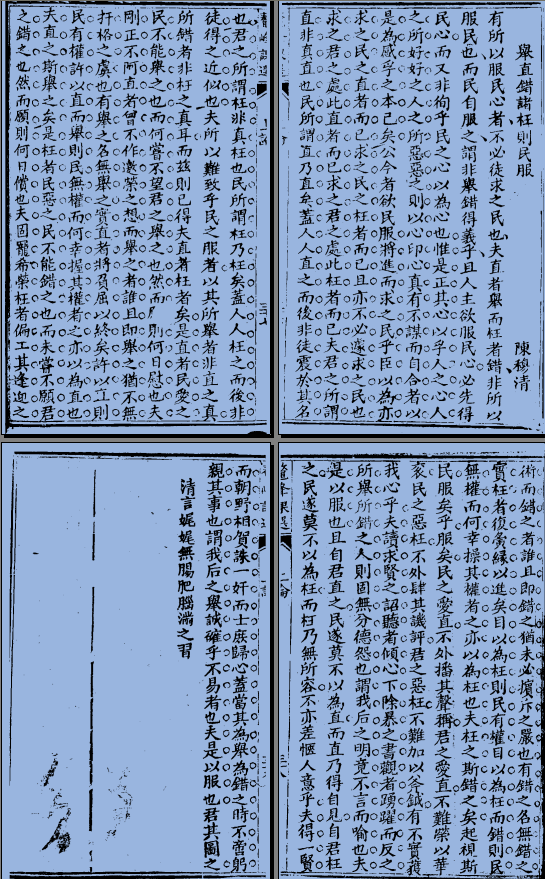 舉直錯諸枉則民服 陳穆清
有所以服民心者不必徒求之民也夫直者舉而枉者錯非所以
服民也而民自服之謂非舉錯得義乎且人主欲服民心必先得
民心而又非徇乎民之心以為心也惟是正其心以孚人之心人
之所好好之人之所惡惡之則以心印心真有不謀而自合者以
是為感孚之本已矣公今者欲民服將進而求之民乎臣以為亦
求之民之直者而已求之民之枉者而已且亦不必遽求之民也
求之君之處此直者而已求之君之處此枉者而已夫君之所謂
直非真直也民所謂直乃直矣蓋人人直之而後非徒褒於其名
也君之所謂枉非真枉也民所謂枉乃枉矣蓋人人枉之而後非
徒得之近似也夫所以難致乎民之服者以其所舉者非直之真
所錯者非枉之真耳而茲則已得夫直者枉者矣是直者民愛之
民不能舉之也而何嘗不望君之舉之也然而則何日慰也夫
剛正不阿直者曾不作邀榮之想而舉之者誰且即舉之猶不無
扞格之虞也有舉之名無舉之實直者將負屈以終矣許以直則
民有權許以直而舉則民無權而何幸握其權者之亦以為直也
夫直之斯舉之矣是枉者民惡之民不能錯之也而未嘗不願君
之錯之也然而願則何日償也夫固寵希榮枉者偏工其逢迎之
術而錯之者誰且即錯之猶未必擯斥之嚴也有錯之名無錯之
實枉者復夤緣以進矣目以為枉則民有權目以為枉而錯則民
無權而何幸操其權者之亦以為枉也夫枉之斯錯之矣起視斯
民服矣乎服矣民之愛直不外播其聲稱君之愛直不難榮以華
袞民之惡枉不外肆其譏評君之惡枉不難加以斧鉞有不實獲
我心乎夫讀求賢之詔聽者傾心下除暴之書觀者踴躍而反之
所舉所錯之人則固無分德怨也謂我后之明竟不言而喻也夫
是以服也且自君直之民遂莫不以為直而直乃得自見自君枉
之民遂莫不以為枉而枉乃無所容不亦差愜人意乎夫得一賢
而朝野相賀誅一奸而士庶歸心蓋當其為舉為錯之時不啻躬
親其事也謂我后之舉誠確乎不易者也夫是以服也君其圖之
清言娓娓無腸肥腦滿之習